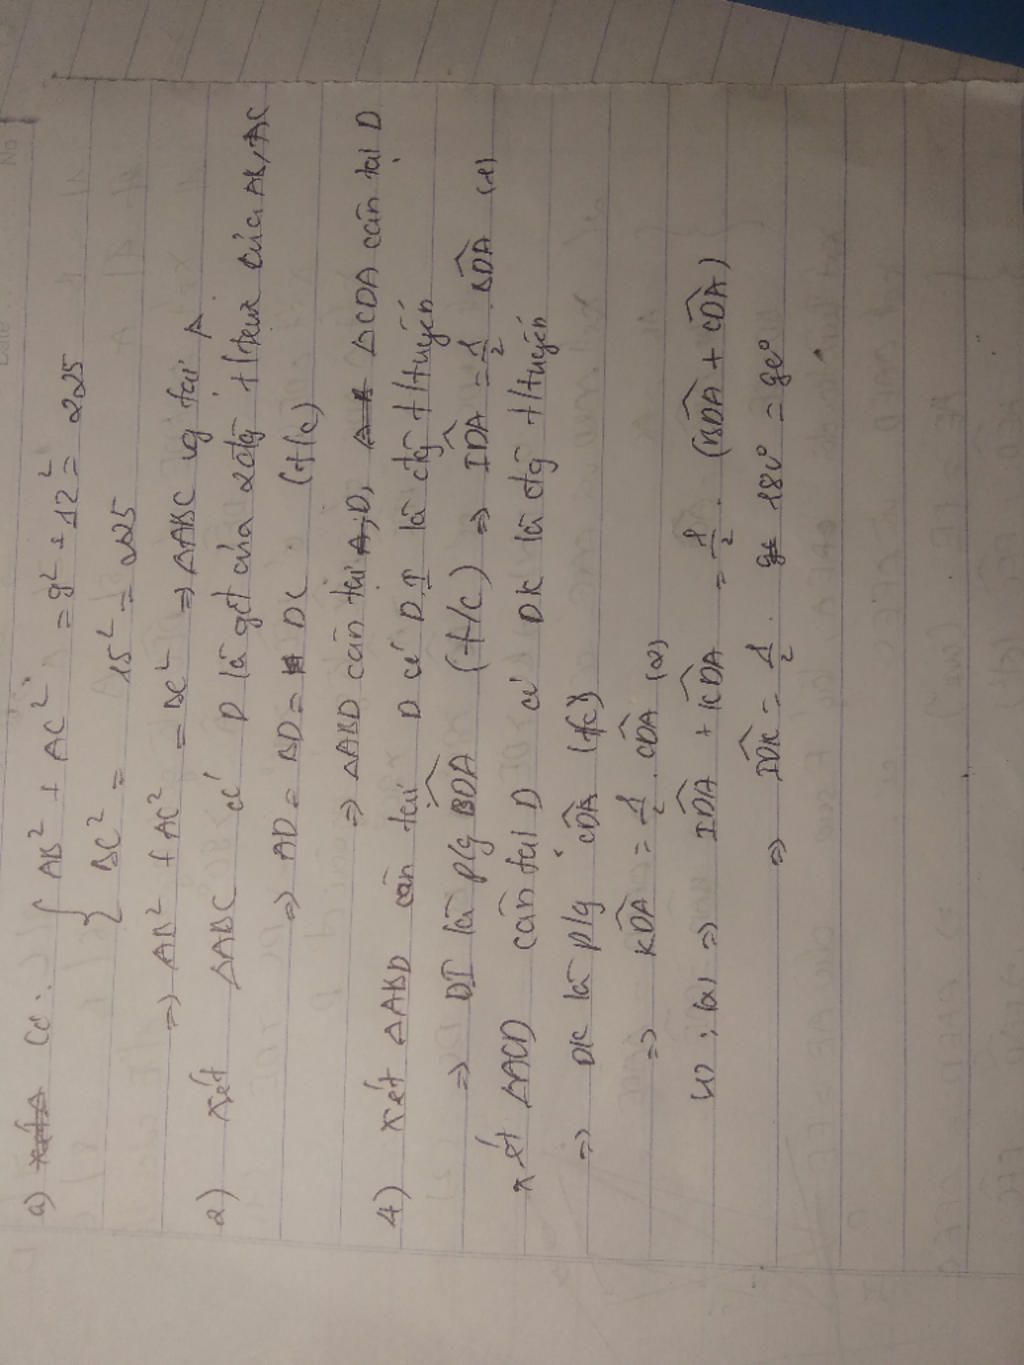 a) Có: { AB² + AC² = 9² + 12² = 225
BC² = 15² = 225
⇒ AB² + AC² = BC² ⇒ ΔABC vg tại A
2) xét ΔABC có D là gđ của 2 đg t/trực của AB, AC
⇒ AD = BD = DC (t/c)
⇒ ΔABD cân tại D, ΔCDA cân tại D
4) xét ΔABD cân tại D có DI là đg t/tuyến
⇒ DI là p/g BDA (t/c) ⇒ IDA = 1/2 . BDA (1)
xét ΔACD cân tại D có DK là đg t/tuyến
⇒ DK là p/g CDA (t/c)
⇒ KDA = 1/2 . CDA (2)
(1); (2) ⇒ IDA + KDA = 1/2 . (BDA + CDA)
⇒ IDK = 1/2 . 180° = 90°